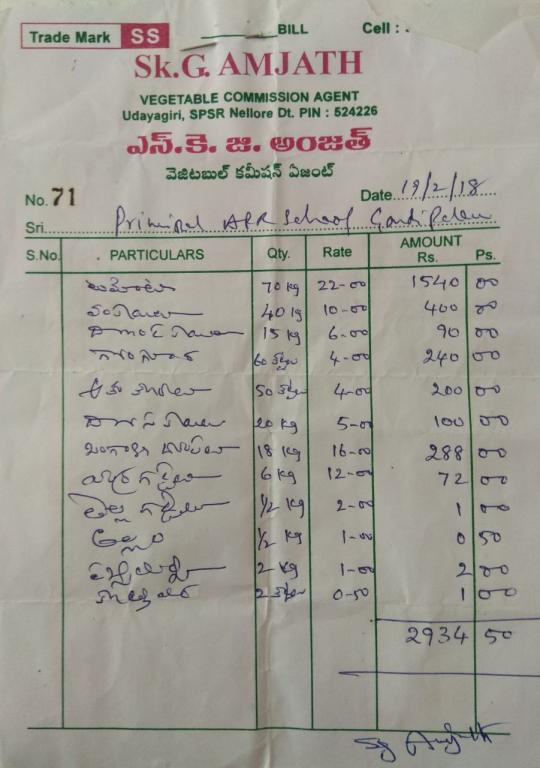 Trade Mark SS BILL Cell :
Sk.G. AMJATH
VEGETABLE COMMISSION AGENT
Udayagiri, SPSR Nellore Dt. PIN : 524226
ఎస్.కె. జి. అంజత్
వెజిటబుల్ కమీషన్ ఏజంట్
No. 71 Date 19/2/18
Sri Principal APR School Gandipalem
S.No. PARTICULARS Qty. Rate AMOUNT Rs. Ps.
70 kg 22-00 1540 00
వంకాయలు 40 kg 10-00 400 00
15 kg 6-00 90 00
గోంగూర 60 కట్టలు 4-00 240 00
ఆకు కూరలు 50 కట్టలు 4-00 200 00
20 kg 5-00 100 00
18 kg 16-00 288 00
6 kg 12-00 72 00
1/2 kg 2-00 1 00
అల్లం 1/2 kg 1-00 0 50
2 kg 1-00 2 00
2 కట్టలు 0-50 1 00
2934 50